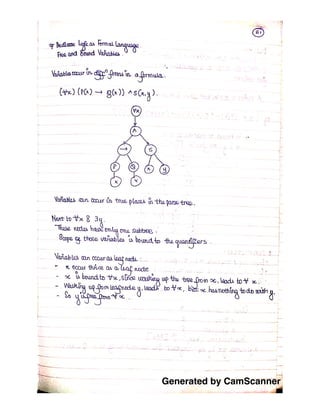 61
Predicate logic as Formal Language
Free and Bound Variables
Variables occur in diffⁿ forms in a formula.
(∀x) (P(x) → Q(x)) ∧ S(x,y).
∀x
∧
→ S
P Q x y
x x
Variables can occur in two places in the parse tree.
Next to ∀x & ∃y.
These nodes have only one subtree.
Scope of these variables is bound to the quantifiers.
Variables can occur as leaf node.
- x occur thrice as a leaf node
- x is bound to ∀x, since walking up the tree from x, leads to ∀x.
- Walking up from leaf node y, leads to ∀x, but x has nothing to do with y.
- So y is free from ∀x.
Generated by CamScanner